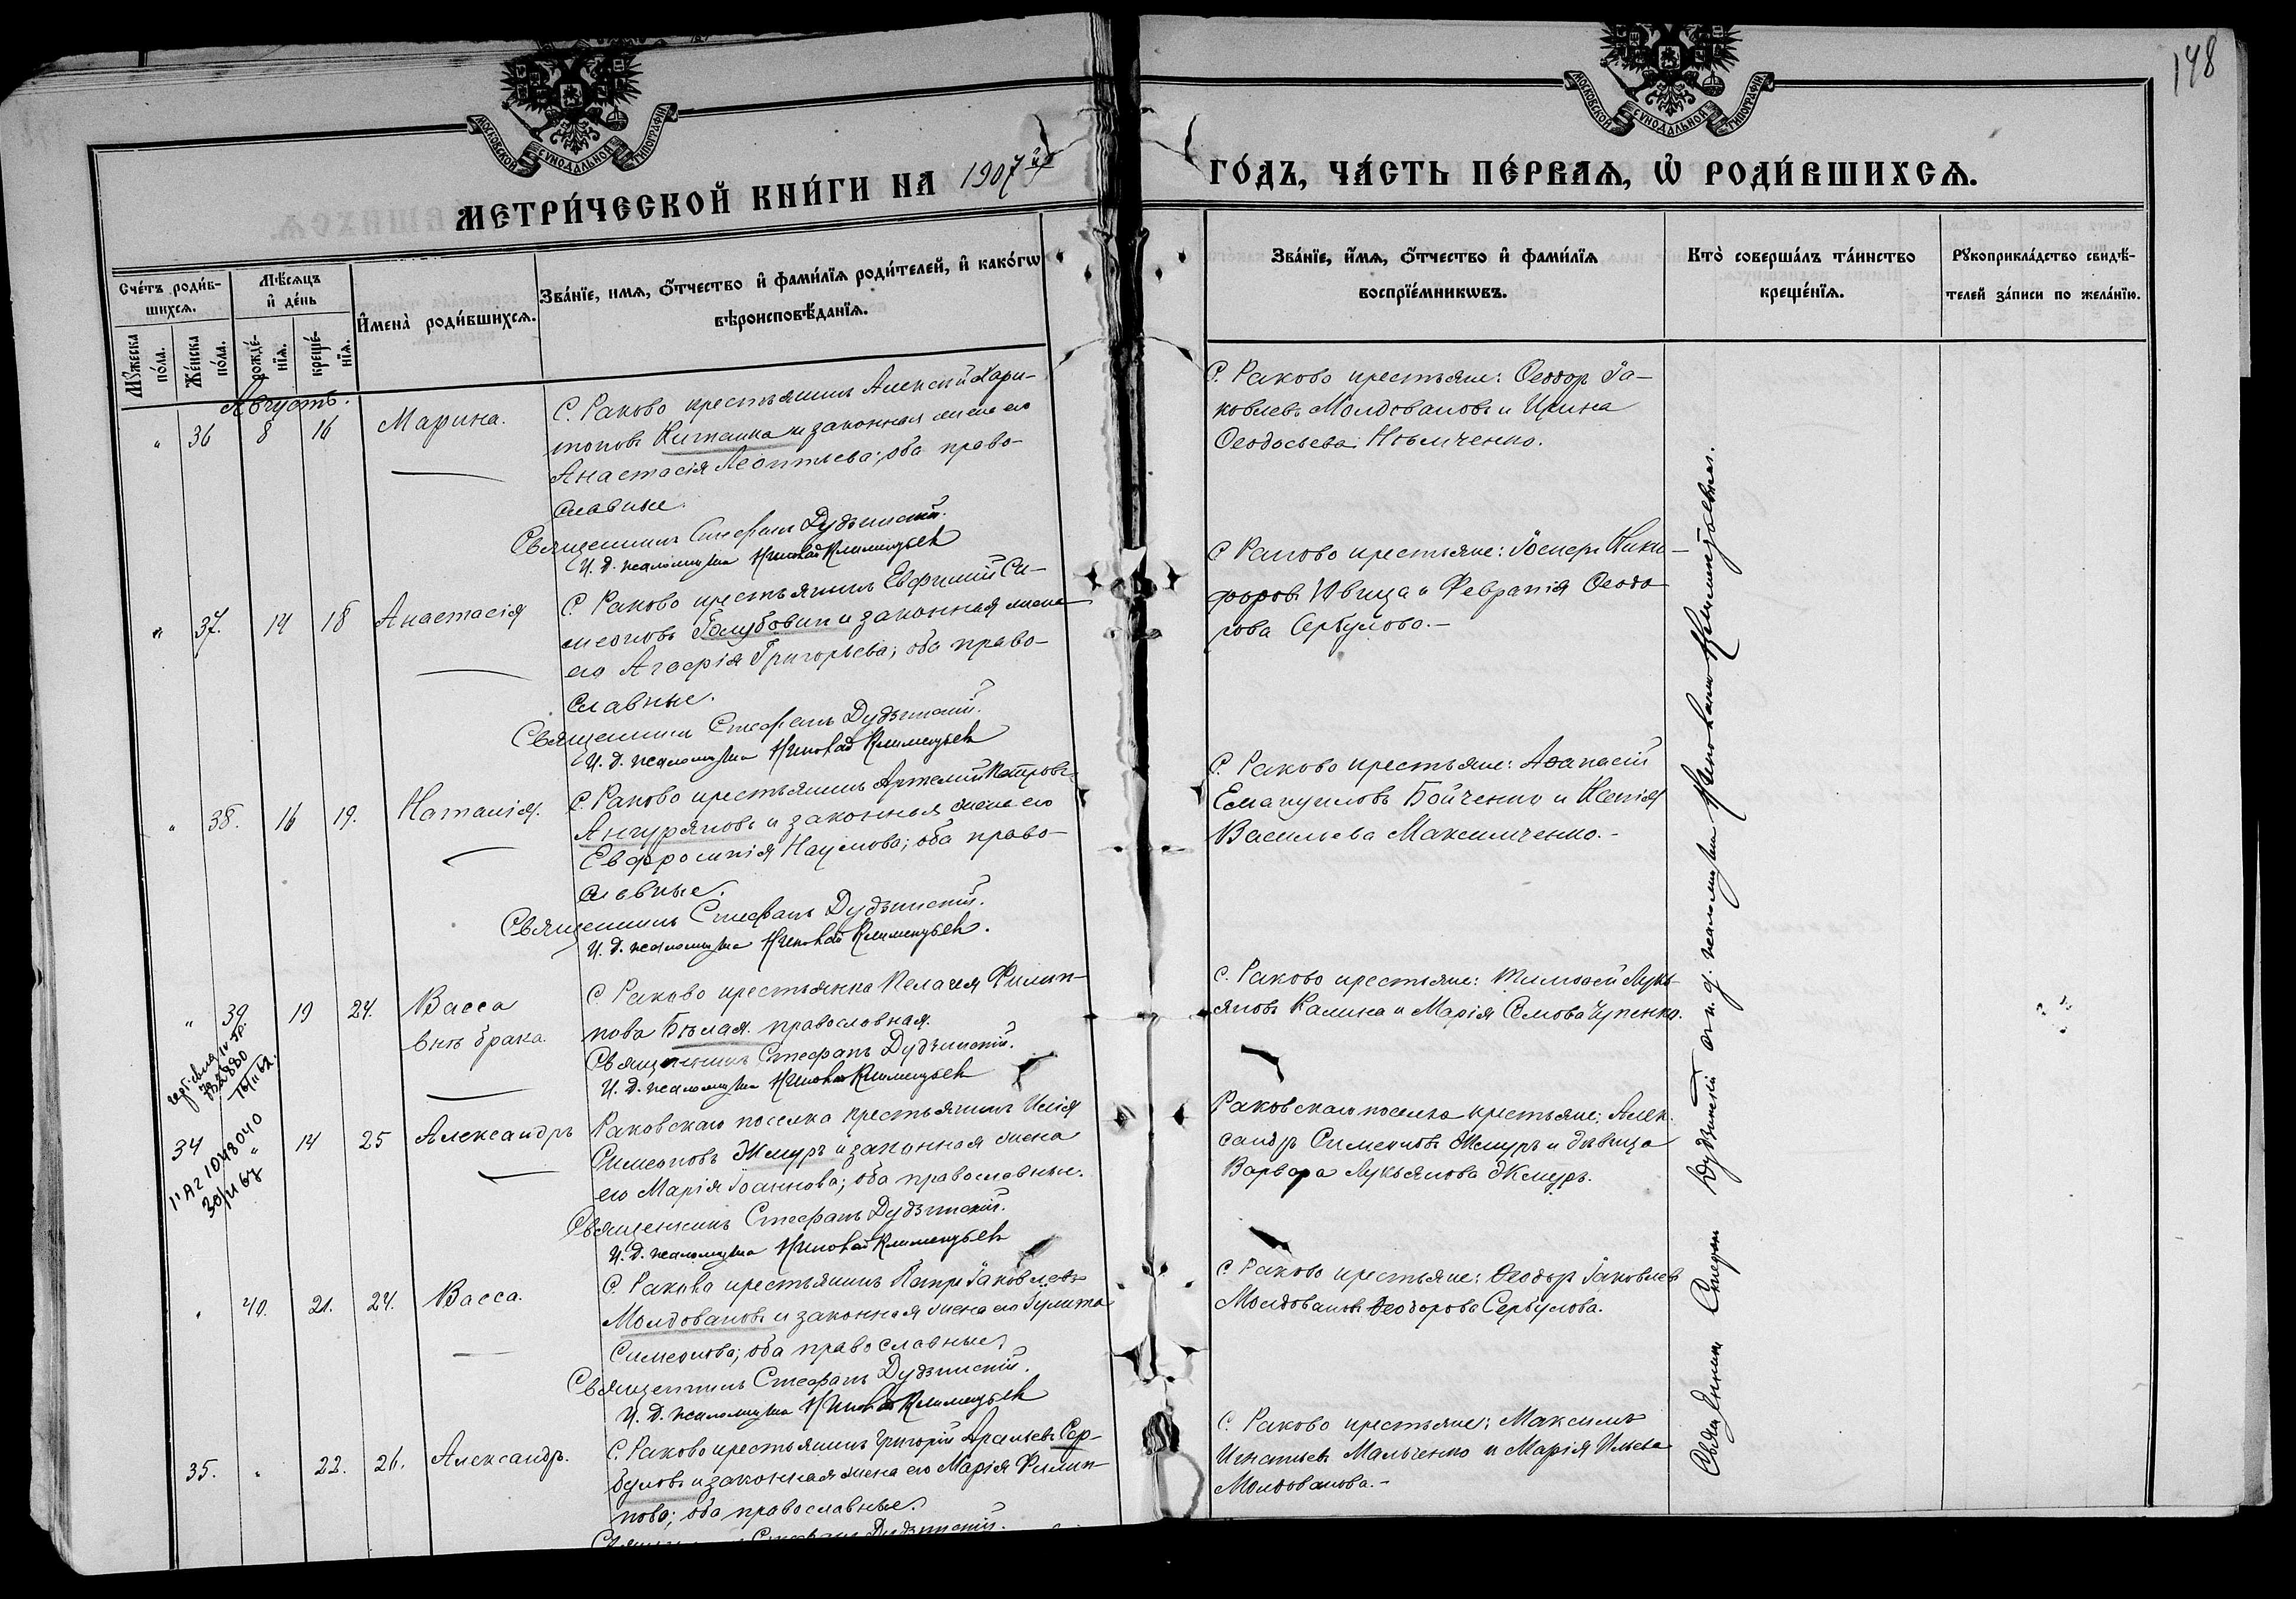 148
МОСКОВСКОЙ СѴНОДАЛЬНОЙ ТИПОГРАФІИ
МОСКОВСКОЙ СѴНОДАЛЬНОЙ ТИПОГРАФІИ
МЕТРИ́ЧЕСКОЙ КНИ́ГИ НА 1907й
ГО́ДЪ, ЧА́СТЬ ПЕ́РВАѦ, Ѡ҆ РОДИ́ВШИХСѦ.
Сче́тъ роди́в-
шихсѧ.
Мꙋ́жеска по́ла.
Же́нска по́ла.
Мѣ́сѧцъ
и҆ де́нь
рожде́-
нїѧ.
креще́-
нїѧ.
И҆мена̀ роди́вшихсѧ.
Зва́нїе, имѧ, ѻ҆́тчество и҆ фами́лїѧ роди́телей, и҆ како́гѡ
вѣроисповѣ́данїѧ.
Зва́нїе, и҆́мѧ, ѻ҆́тчество и҆ фами́лїѧ
воспрїе́мникѡвъ.
Кто̀ соверша́лъ та́инство
креще́нїѧ.
Рꙋкоприкла́дство свидѣ́-
телей за́писи по жела́нїю.
Августъ.
" 36 8 16 Марина.
С. Раково крестьянинъ Алексій Хари-
тоновъ Китайка и законная жена его
Анастасія Леонтьева; оба право-
славные.
Священникъ Стефанъ Дудзинскій.
И. д. псаломщика Климентьев
С. Раково крестьяне: Ѳеодоръ Іа-
ковлевъ Молдовановъ и Ирина
Ѳеодосьева Нѣмченко.
" 37. 14 18 Анастасія
С. Раково крестьянинъ Евфимій Си-
меоновъ Голубовин и законная жена
его Агафія Григорьева; оба право-
славные.
Священникъ Стефанъ Дудзинскій.
И. д. псаломщика Климентьев
С. Раково крестьяне: Іосифъ Ники-
форовъ и Февранія Ѳеодо-
рова Сербулова.-
" 38. 16 19. Наталія.
С. Раково крестьянинъ Артемій Петровъ
Ангуряновъ и законная жена его
Евфросинія Наумова; оба право-
славные.
Священникъ Стефанъ Дудзинскій.
И. д. псаломщика Климентьев.
С. Раково крестьяне: Аѳанасій
Емануиловъ Бойченко и Ксенія
Васильева Максимченко.-
" 39 19 24. Васса
внѣ брака.
С. Раково крестьянка Пелагея Филип-
пова Бѣлая. православная.
Священникъ Стефанъ Дудзинскій.
И. д. псаломщика Климентьев
С. Раково крестьяне: Тимоѳей Лукь-
яновъ Калина и Марія Чупенко.
34 " 14 25 Александръ
Раковскаго поселка крестьянинъ Илія
Симеоновъ Жмуръ и законная жена
его Марія Іоаннова; оба православные.
Священникъ Стефанъ Дудзинскій.
И. д. псаломщика Климентьев
Раковскаго поселка крестьяне: Алек-
сандръ Симеоновъ Жмуръ и дѣвица
Варвара Лукьянова Жмуръ.
" 40. 21. 24. Васса.
С. Раково крестьянинъ Петръ Іаковлевъ
Молдовановъ и законная жена его Іулита
Симеонова; оба православные.
Священникъ Стефанъ Дудзинскій.
И. д. псаломщика Климентьев
С. Раково крестьяне: Ѳеодоръ Іаковлев
Молдованов Ѳеодорова Сербулова.
35. " 22. 26. Александръ.
С. Раково крестьянинъ Григорій Сер-
буловъ и законная жена его Марія Филип-
пова; оба православные.
Стефанъ Дудзинскій.
С. Раково крестьяне: Максимъ
Игнатьевъ Мальченко и Марія Ильева
Молдованова.-
Священникъ Стефанъ Дудзинскій и и. д. псаломщика Климентьев.